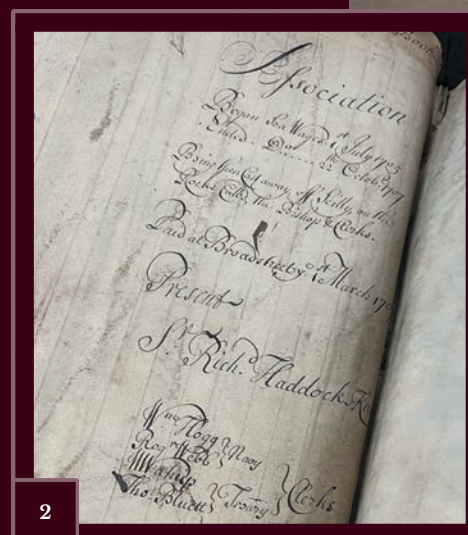 Book
Association
Began Sea Wages 1st July 1705
Ended Do 22th Octobr 1707
Being then Cast away off Scilly, on the
Rocks Called, the Bishop & Clerks.
Paid at Broadstreet by March 170
Present
Sr Richd Haddock Kt
Wm Hogg } Navy
Rogr Webb
} Clerks
Tho: Bluett } Treãry
2